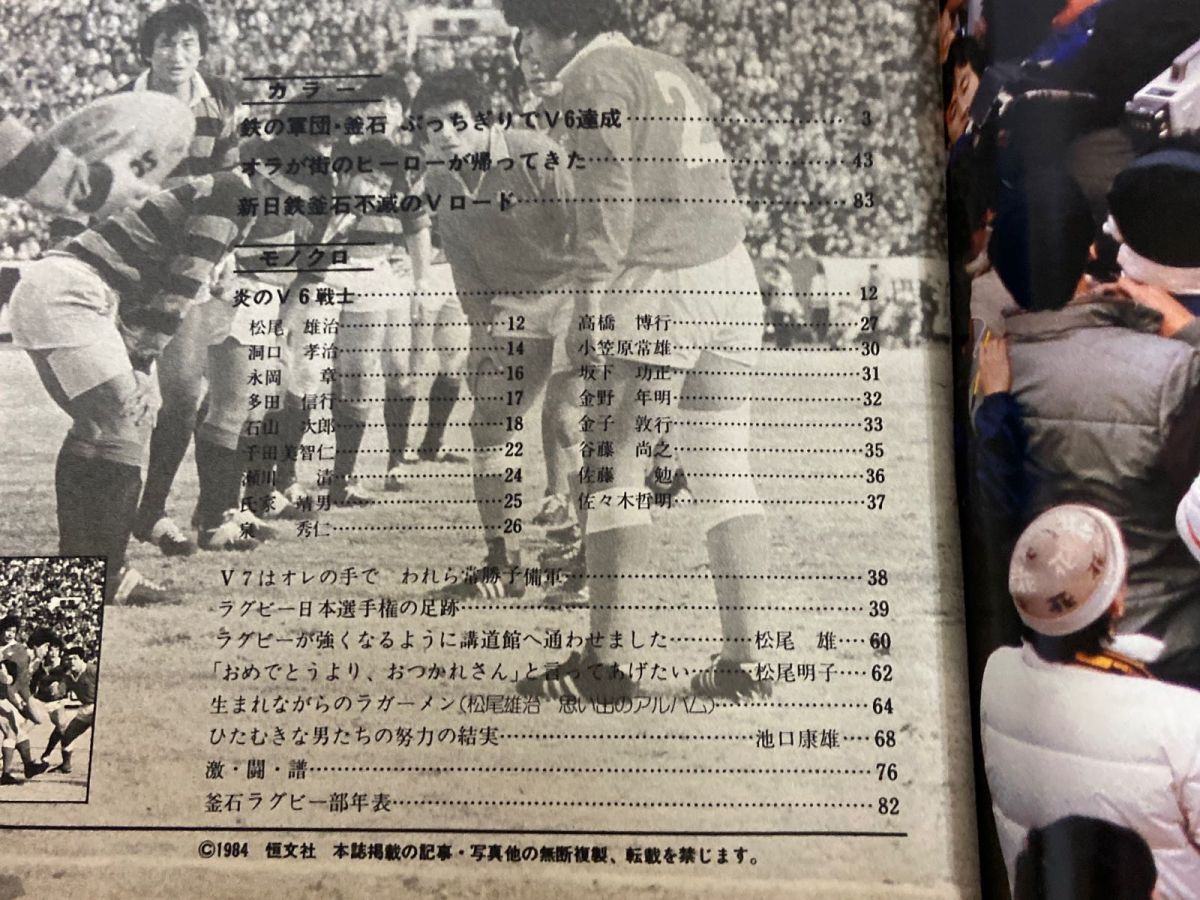 カラー
鉄の軍団・釜石 ぶっちぎりでV6達成……3
オラが街のヒーローが帰ってきた……43
新日鉄釜石不滅のVロード……83
モノクロ
炎のV6戦士……12
松尾 雄治……12
洞口 孝治……14
永岡 章……16
多田 信行……17
石山 次郎……18
千田美智仁……22
瀬川 清……24
氏家 靖男……25
泉 秀仁……26
高橋 博行……27
小笠原常雄……30
坂下 功正……31
金野 年明……32
金子 敦行……33
谷藤 尚之……35
佐藤 勉……36
佐々木哲明……37
V7はオレの手で われら常勝予備軍……38
ラグビー日本選手権の足跡……39
ラグビーが強くなるように講道館へ通わせました……松尾 雄……60
「おめでとうより、おつかれさん」と言ってあげたい……松尾明子……62
生まれながらのラガーメン(松尾雄治 思い出のアルバム)……64
ひたむきな男たちの努力の結実……池口康雄……68
激・闘・譜……76
釜石ラグビー部年表……82
©1984 恒文社 本誌掲載の記事・写真他の無断複製、転載を禁じます。